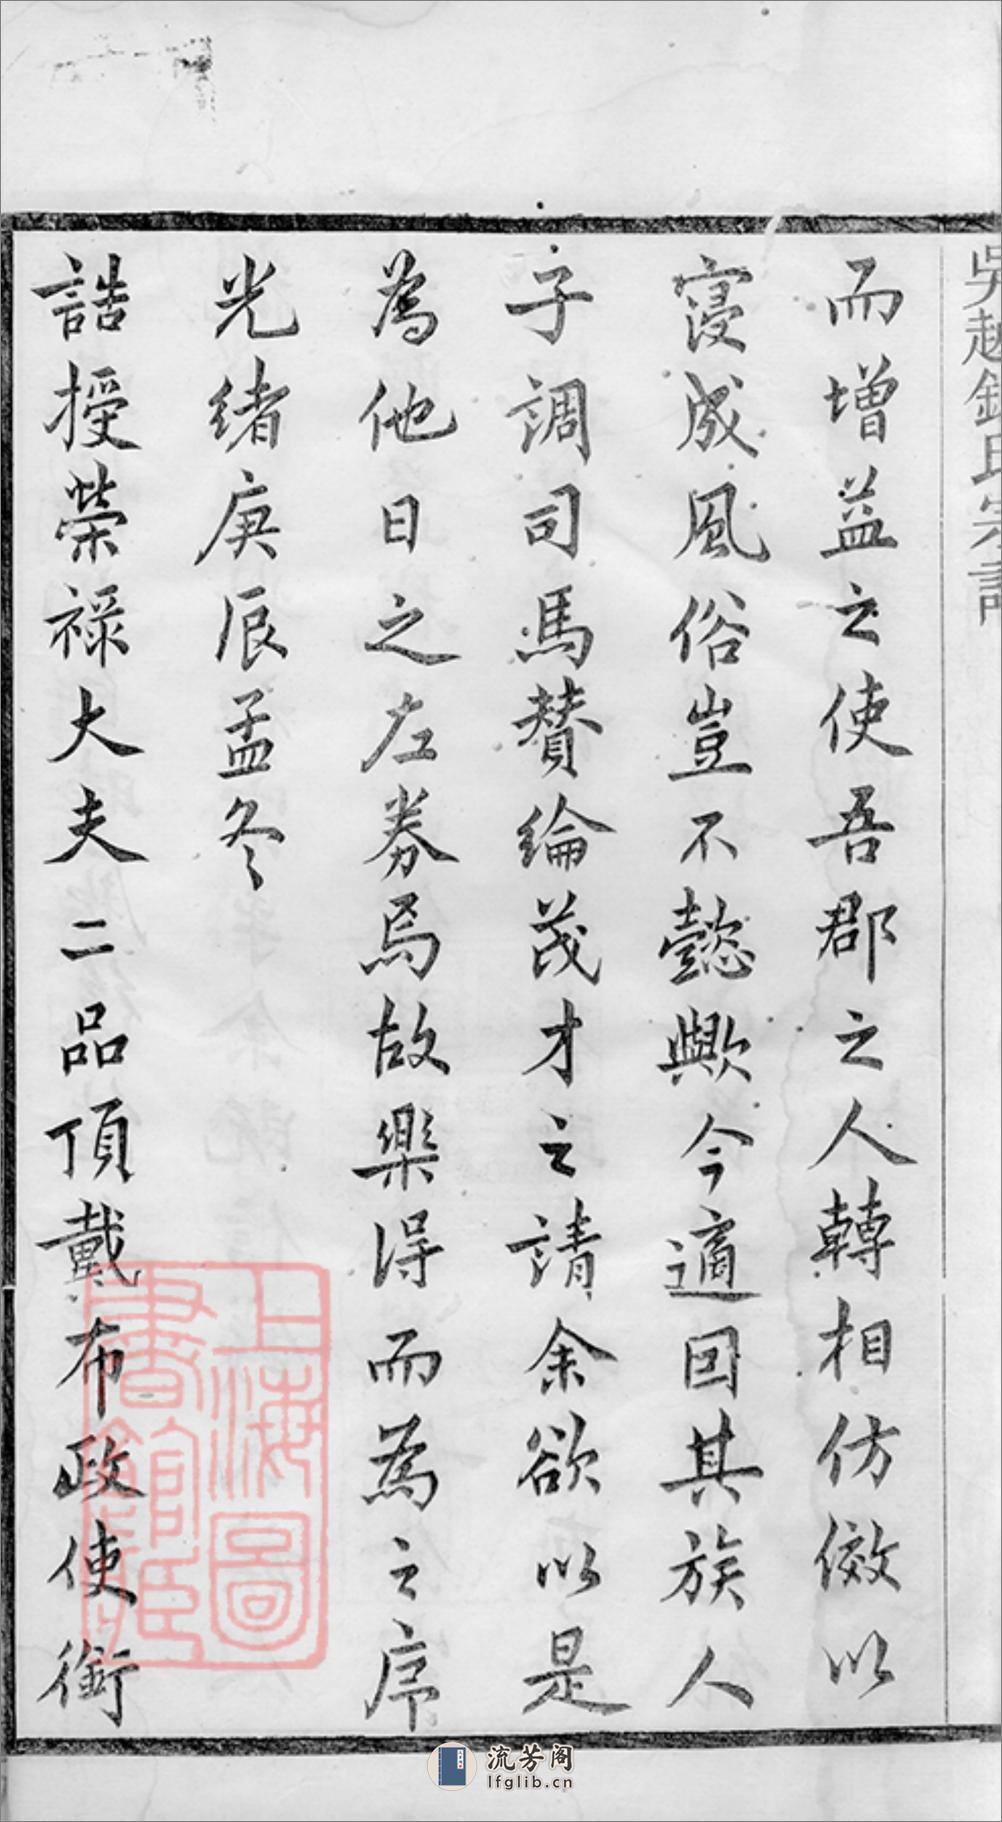 吳越錢氏宗譜
而增益之使吾郡之人轉相仿傚以
寖成風俗豈不懿歟今適因其族人
子調司馬贊綸茂才之請余欲以是
為他日之左券焉故樂得而為之序
光緒庚辰孟冬
誥授榮祿大夫二品頂戴布政使銜
上海圖書館藏
流芳阁
lfglib.cn